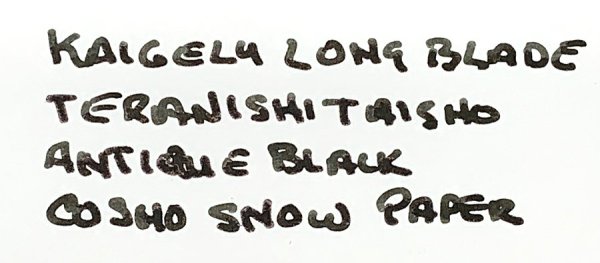 KAIGELU LONG BLADE
TERANISHI TAISHO
ANTIQUE BLACK
COSHO SNOW PAPER